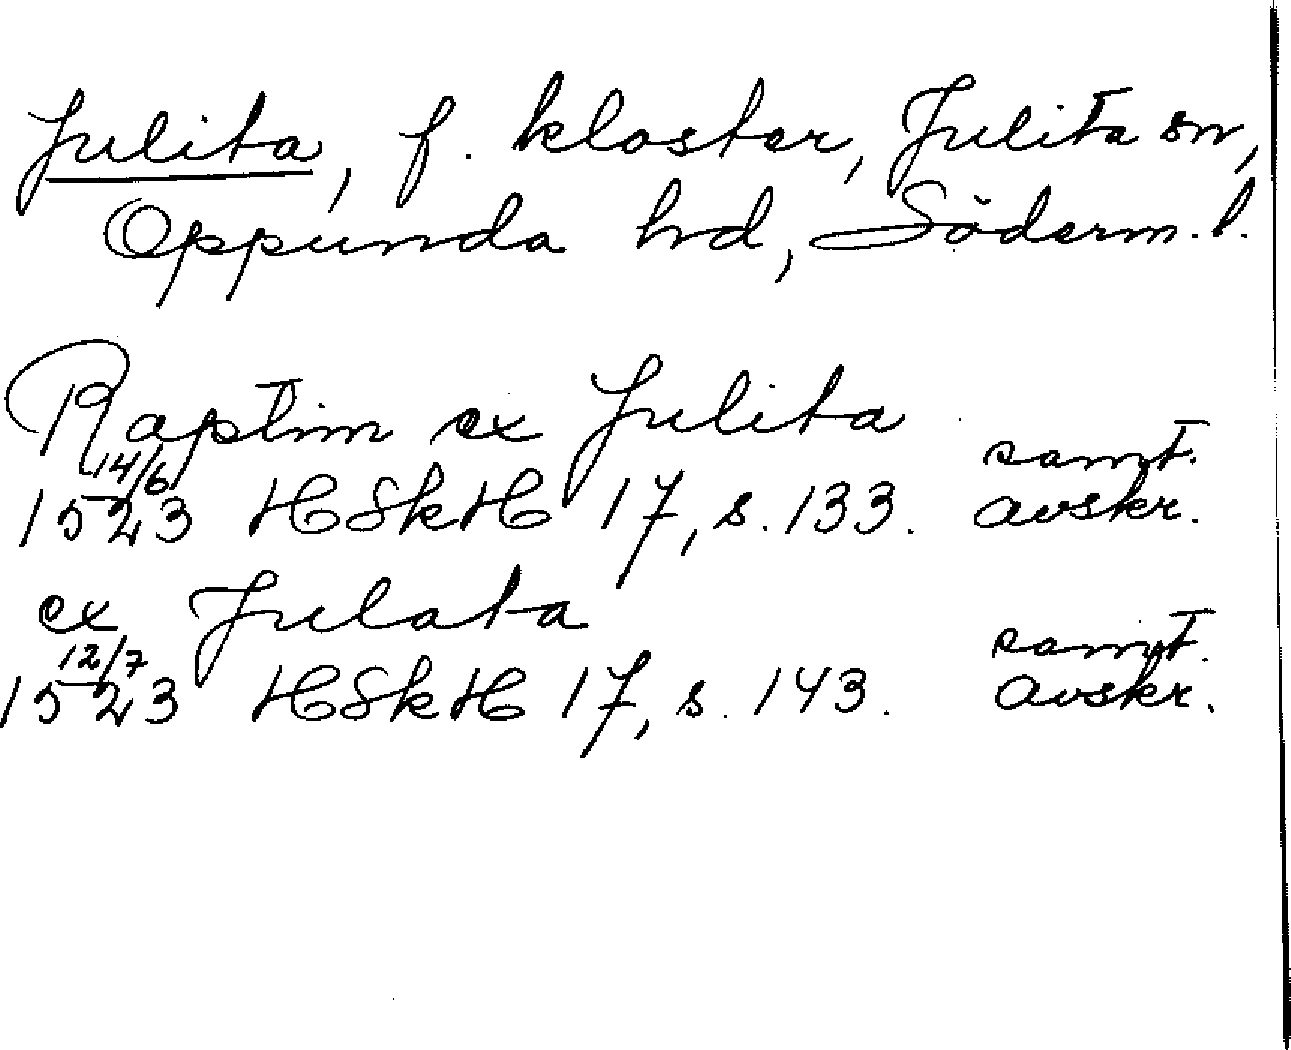 Julita, f. kloster, Julita sn,
Oppunda hd, Söderm. l.
Raptim ex Julita
14/6
1523 HSkH 17, s. 133. samt. avskr.
ex Julata
12/7
1523 HSkH 17, s. 143. samt. avskr.